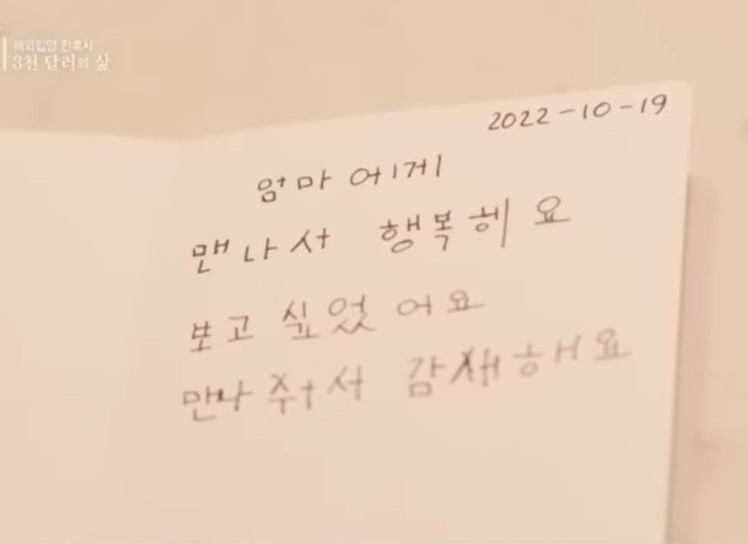 해외입양 잔혹사
3천 달러의 삶
2022-10-19
엄마에게
맨나서 행복헤요
보고 싶었어요
만나주서 감재해요